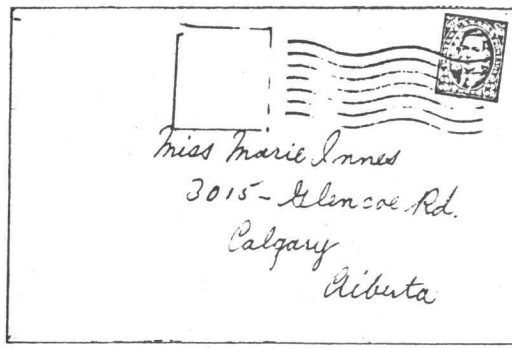 Miss Marie Innes
3015 - Glencoe Rd.
Calgary
Alberta